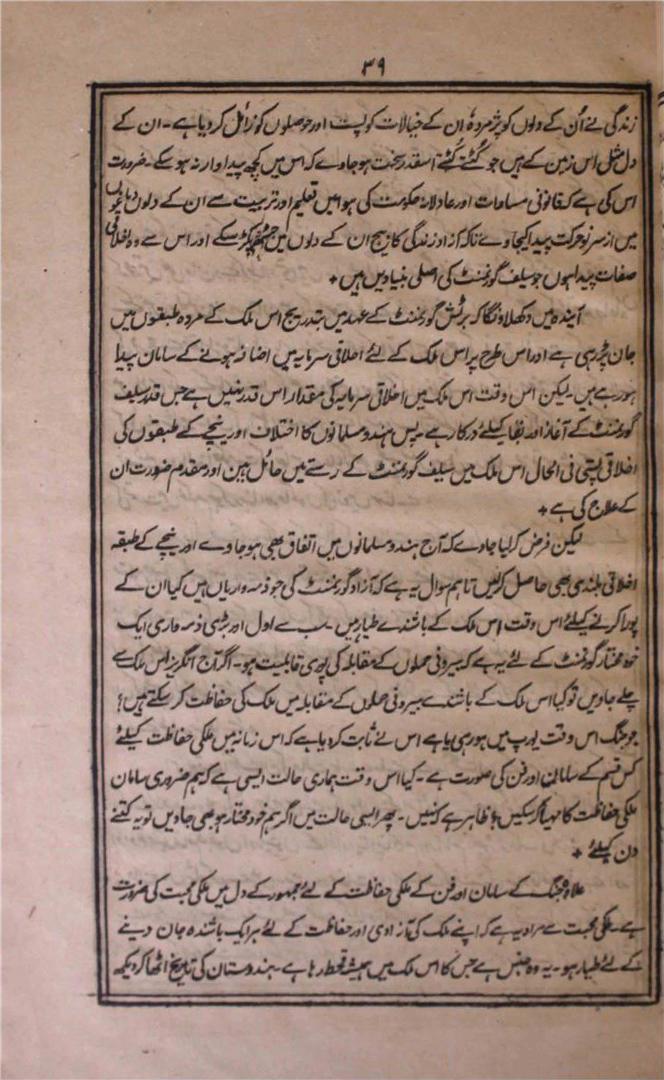 ۳۹
زندگی نے اُن کے دلوں کو پژمردہ ان کے خیالات کو پست اور حوصلوں کو زائل کر دیا ہے۔ ان کے
دل مثل اس زمین کے ہیں جو کُٹتے کُٹتے اسقدر سخت ہو جاوے کہ اس میں کچھ پیداوار نہ ہو سکے۔ ضرورت
اس کی ہے کہ قانونی مساوات اور عادلانہ حکومت کی ہوا میں تعلیم اور تربیت سے ان کے دلوں دماغوں
میں از سر نو حرکت پیدا کیجاوے تاکہ آزاد زندگی کا بیج ان کے دلوں میں جڑ پکڑ سکے اور اس سے وہ اخلاقی
صفات پیدا ہوں جو سیلف گورنمنٹ کی اصلی بنیادیں ہیں +
آیندہ میں دکھلاونگا کہ برٹش گورنمنٹ کے عہد میں بتدریج اس ملک کے مردہ طبقوں میں
جان پڑ رہی ہے اور اس طرح پر اس ملک کے لئے اخلاقی سرمایہ میں اضافہ ہونے کے سامان پیدا
ہو رہے ہیں۔ لیکن اس وقت اس ملک میں اخلاقی سرمایہ کی مقدار اس قدر نہیں ہے جس قدر سیلف
گورنمنٹ کے آغاز اور بقا کیلئے درکار ہے۔ پس ہندو مسلمانوں کا اختلاف اور نیچے کے طبقوں کی
اخلاقی پستی فی الحال اس ملک میں سیلف گورنمنٹ کے رستے میں حائل ہیں اور مقدم ضرورت ان
کے علاج کی ہے +
لیکن فرض کر لیا جاوے کہ آج ہندو مسلمانوں میں اتفاق بھی ہو جاوے اور نیچے کے طبقہ
اخلاقی بلندی بھی حاصل کر لیں تاہم سوال یہ ہے کہ آزاد گورنمنٹ کی جو ذمہ واریاں ہیں کیا ان کے
پورا کرنے کیلئے اس وقت اس ملک کے باشندے طیار ہیں۔ سب سے اول اور بڑی ذمہ واری ایک
خود مختار گورنمنٹ کے لئے یہ ہے کہ بیرونی حملوں کے مقابلہ کی پوری قابلیت ہو۔ اگر آج انگریز اس ملک سے
چلے جاویں تو کیا اس ملک کے باشندے بیرونی حملوں کے مقابلہ میں ملک کی حفاظت کر سکتے ہیں؟
جو جنگ اس وقت یورپ میں ہو رہی ہے اس نے ثابت کر دیا ہے کہ اس زمانہ میں ملکی حفاظت کیلئے
کس قسم کے سامان اور فن کی ضرورت ہے۔ کیا اس وقت ہماری حالت ایسی ہے کہ ہم ضروری سامان
ملکی حفاظت کا مہیا کر سکیں؟ ظاہر ہے کہ نہیں۔ پھر ایسی حالت میں اگر ہم خود مختار ہو بھی جاویں تو یہ کتنے
دن کیلئے +
علاوہ جنگ کے سامان اور فن کے ملکی حفاظت کے لئے جمہور کے دل میں ملکی محبت کی ضرورت
ہے۔ ملکی محبت سے مراد یہ ہے کہ اپنے ملک کی آزادی اور حفاظت کے لئے ہر ایک باشندہ جان دینے
کے لئے طیار ہو۔ یہ وہ جنس ہے جس کا اس ملک میں ہمیشہ قحط رہا ہے۔ ہندوستان کی تاریخ اٹھا کر دیکھ